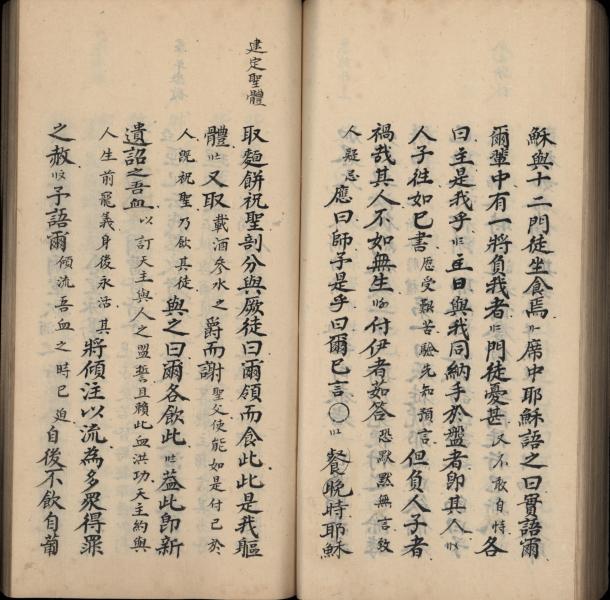 穌與十二門徒坐食焉席中耶穌語之曰實語爾
爾輩中有一將負我者門徒憂甚又不敢自恃各
曰主是我乎主曰與我同納手於盤者即其人
人子往如已書應受艱苦驗先知預言但負人子者
禍哉其人不如無生付伊者茹答恐默默無言致
人疑忌應曰師子是乎曰爾已言○餐晚時耶穌
建定聖體
取麵餅祝聖剖分與厥徒曰爾領而食此此是我軀
體又取載酒參水之爵而謝聖父使能如是付己於
人既祝聖乃飲其徒與之曰爾各飲此蓋此即新
遺詔之吾血以訂天主與人之盟誓且賴此血洪功天主約與
人生前寵義身後永活其將傾注以流為多眾得罪
之赦子語爾傾流吾血之時已迫自後不飲自葡